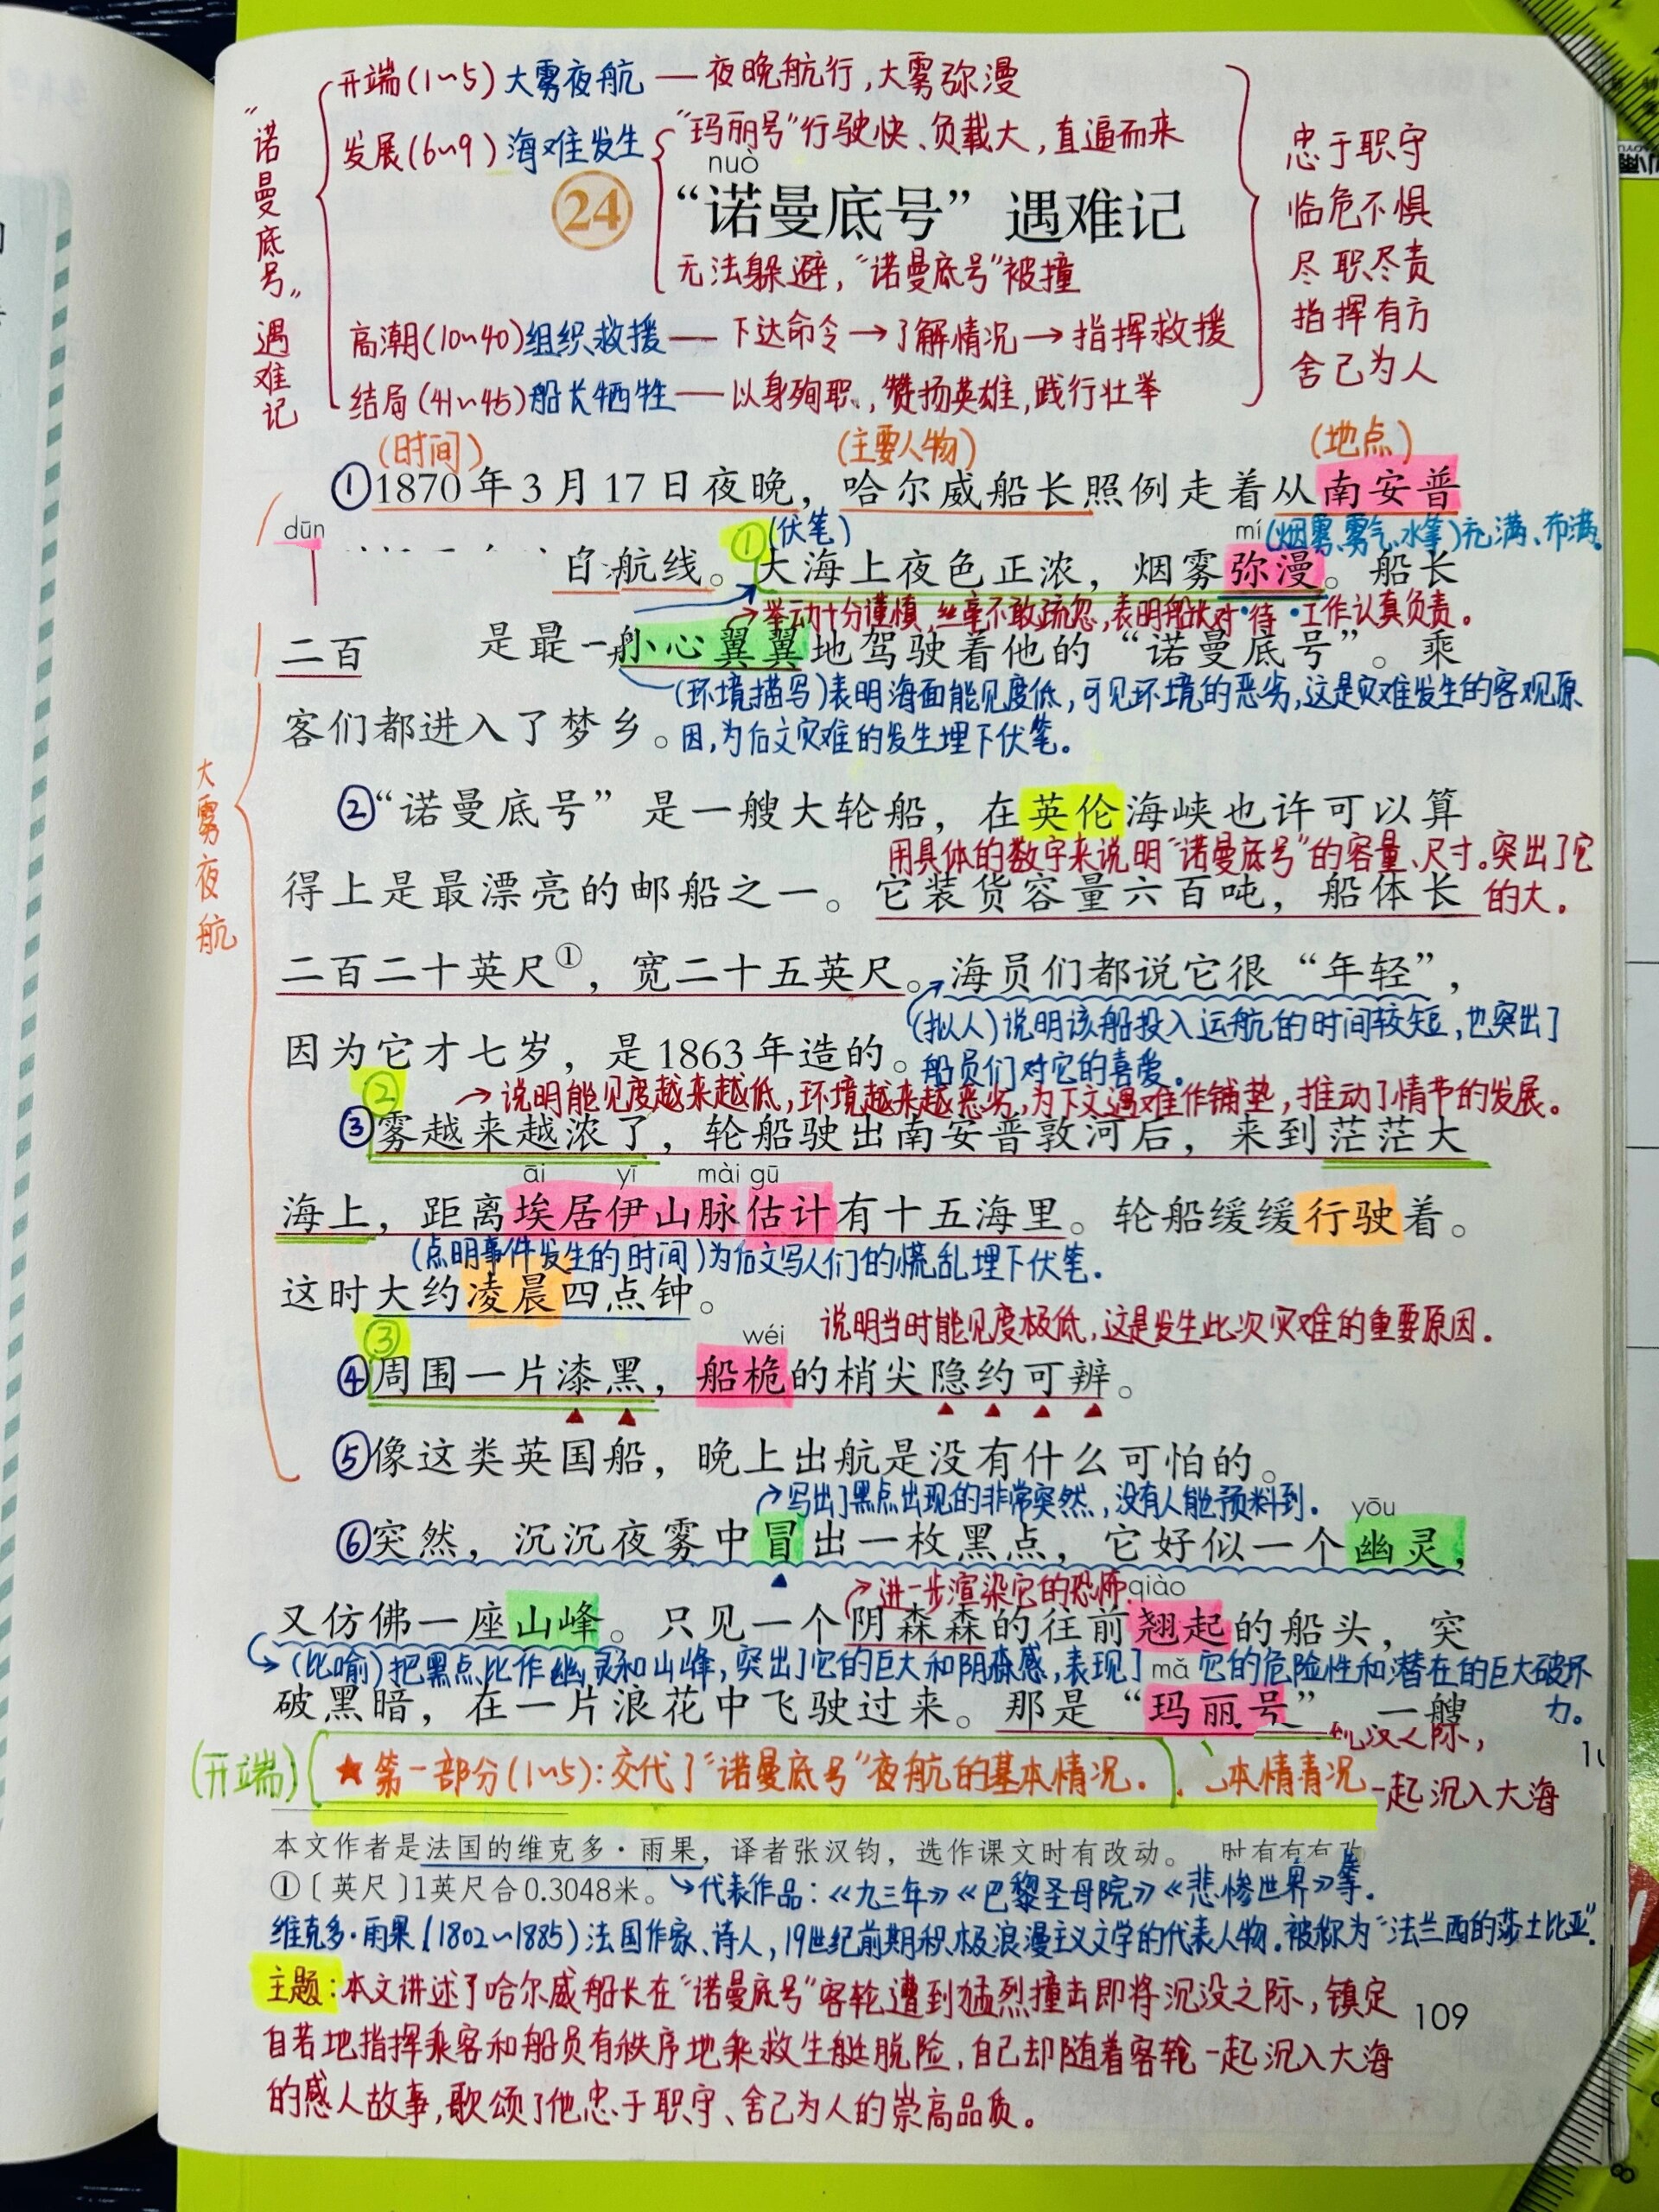 开端(1~5)大雾夜航——夜晚航行,大雾弥漫
发展(6~9)海难发生
"玛丽号"行驶快、负载大,直逼而来
nuò
24 “诺曼底号”遇难记
无法躲避,"诺曼底号"被撞
高潮(10~40)组织救援——下达命令→了解情况→指挥救援
结局(41~45)船长牺牲——以身殉职,赞扬英雄,践行壮举
"诺曼底号"遇难记
忠于职守
临危不惧
尽职尽责
指挥有方
舍己为人
(时间) (主要人物) (地点)
①1870年3月17日夜晚,哈尔威船长照例走着从南安普
dūn ①(伏笔) mí (烟雾、雾气、水等)充满、布满。
航线。大海上夜色正浓,烟雾弥漫。船长
→举动十分谨慎,丝毫不敢疏忽,表明船长对待工作认真负责。
二百 是最一 小心翼翼地驾驶着他的“诺曼底号”。乘
(环境描写)表明海面能见度低,可见环境的恶劣,这是灾难发生的客观原
客们都进入了梦乡。因,为后文灾难的发生埋下伏笔。
大雾夜航
②“诺曼底号”是一艘大轮船,在英伦海峡也许可以算
用具体的数字来说明"诺曼底号"的容量、尺寸。突出了它
得上是最漂亮的邮船之一。它装货容量六百吨,船体长 的大。
二百二十英尺①,宽二十五英尺。海员们都说它很“年轻”,
(拟人)说明该船投入运航的时间较短,也突出了
因为它才七岁,是1863年造的。船员们对它的喜爱。
② →说明能见度越来越低,环境越来越恶劣,为下文遇难作铺垫,推动了情节的发展。
③雾越来越浓了,轮船驶出南安普敦河后,来到茫茫大
āi yī mài gū
海上,距离埃居伊山脉估计有十五海里。轮船缓缓行驶着。
(点明事件发生的时间)为后文写人们的慌乱埋下伏笔。
这时大约凌晨四点钟。
③ wéi 说明当时能见度极低,这是发生此次灾难的重要原因。
④周围一片漆黑,船桅的梢尖隐约可辨。
⑤像这类英国船,晚上出航是没有什么可怕的。
→写出了黑点出现的非常突然,没有人能预料到。 yōu
⑥突然,沉沉夜雾中冒出一枚黑点,它好似一个幽灵,
→进一步渲染它的恐怖. qiào
又仿佛一座山峰。只见一个阴森森的往前翘起的船头,突
→(比喻)把黑点比作幽灵和山峰,突出了它的巨大和阴森感,表现了 mǎ 它的危险性和潜在的巨大破坏力。
破黑暗,在一片浪花中飞驶过来。那是“玛丽号” 一艘
之际,
(开端) ★第一部分(1~5):交代了"诺曼底号"夜航的基本情况. 本情青况
一起沉入大海
本文作者是法国的维克多·雨果,译者张汉钧,选作课文时有改动。
①〔英尺〕1英尺合0.3048米。→代表作品:《九三年》《巴黎圣母院》《悲惨世界》等.
维克多·雨果(1802~1885)法国作家、诗人,19世纪前期积极浪漫主义文学的代表人物。被称为"法兰西的莎士比亚".
主题:本文讲述了哈尔威船长在"诺曼底号"客轮遭到猛烈撞击即将沉没之际,镇定
109
自若地指挥乘客和船员有秩序地乘救生艇脱险,自己却随着客轮一起沉入大海
的感人故事,歌颂了他忠于职守、舍己为人的崇高品质。